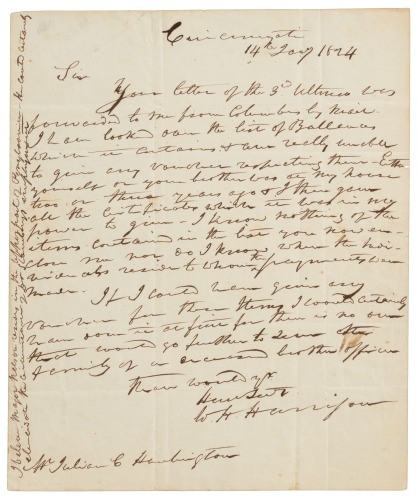 Cincinnati
14th Jany 1824
Sir
Your letter of the 3d Ultimo was
forwarded to me from Columbus by Mail
I have looked over the list of Ballances
which it contains & am really unable
to give any voucher respecting them Either
yourself or your brother was at my house
two or three years ago & I then gave
all the Certificates which it was in my
power to give. I know nothing of the
items contained in the list you now en-
close me nor do I know where the indi-
viduals reside to whom the payments were
made.
If I could have given any
vouchers for those Items I would certainly
have done it as for there is no one
that would go further to serve the
family of a deceased brother officer
than would yr
Hum Servt
W H Harrison
Mr Julian C Huntington
I believe Major in the he could certainly